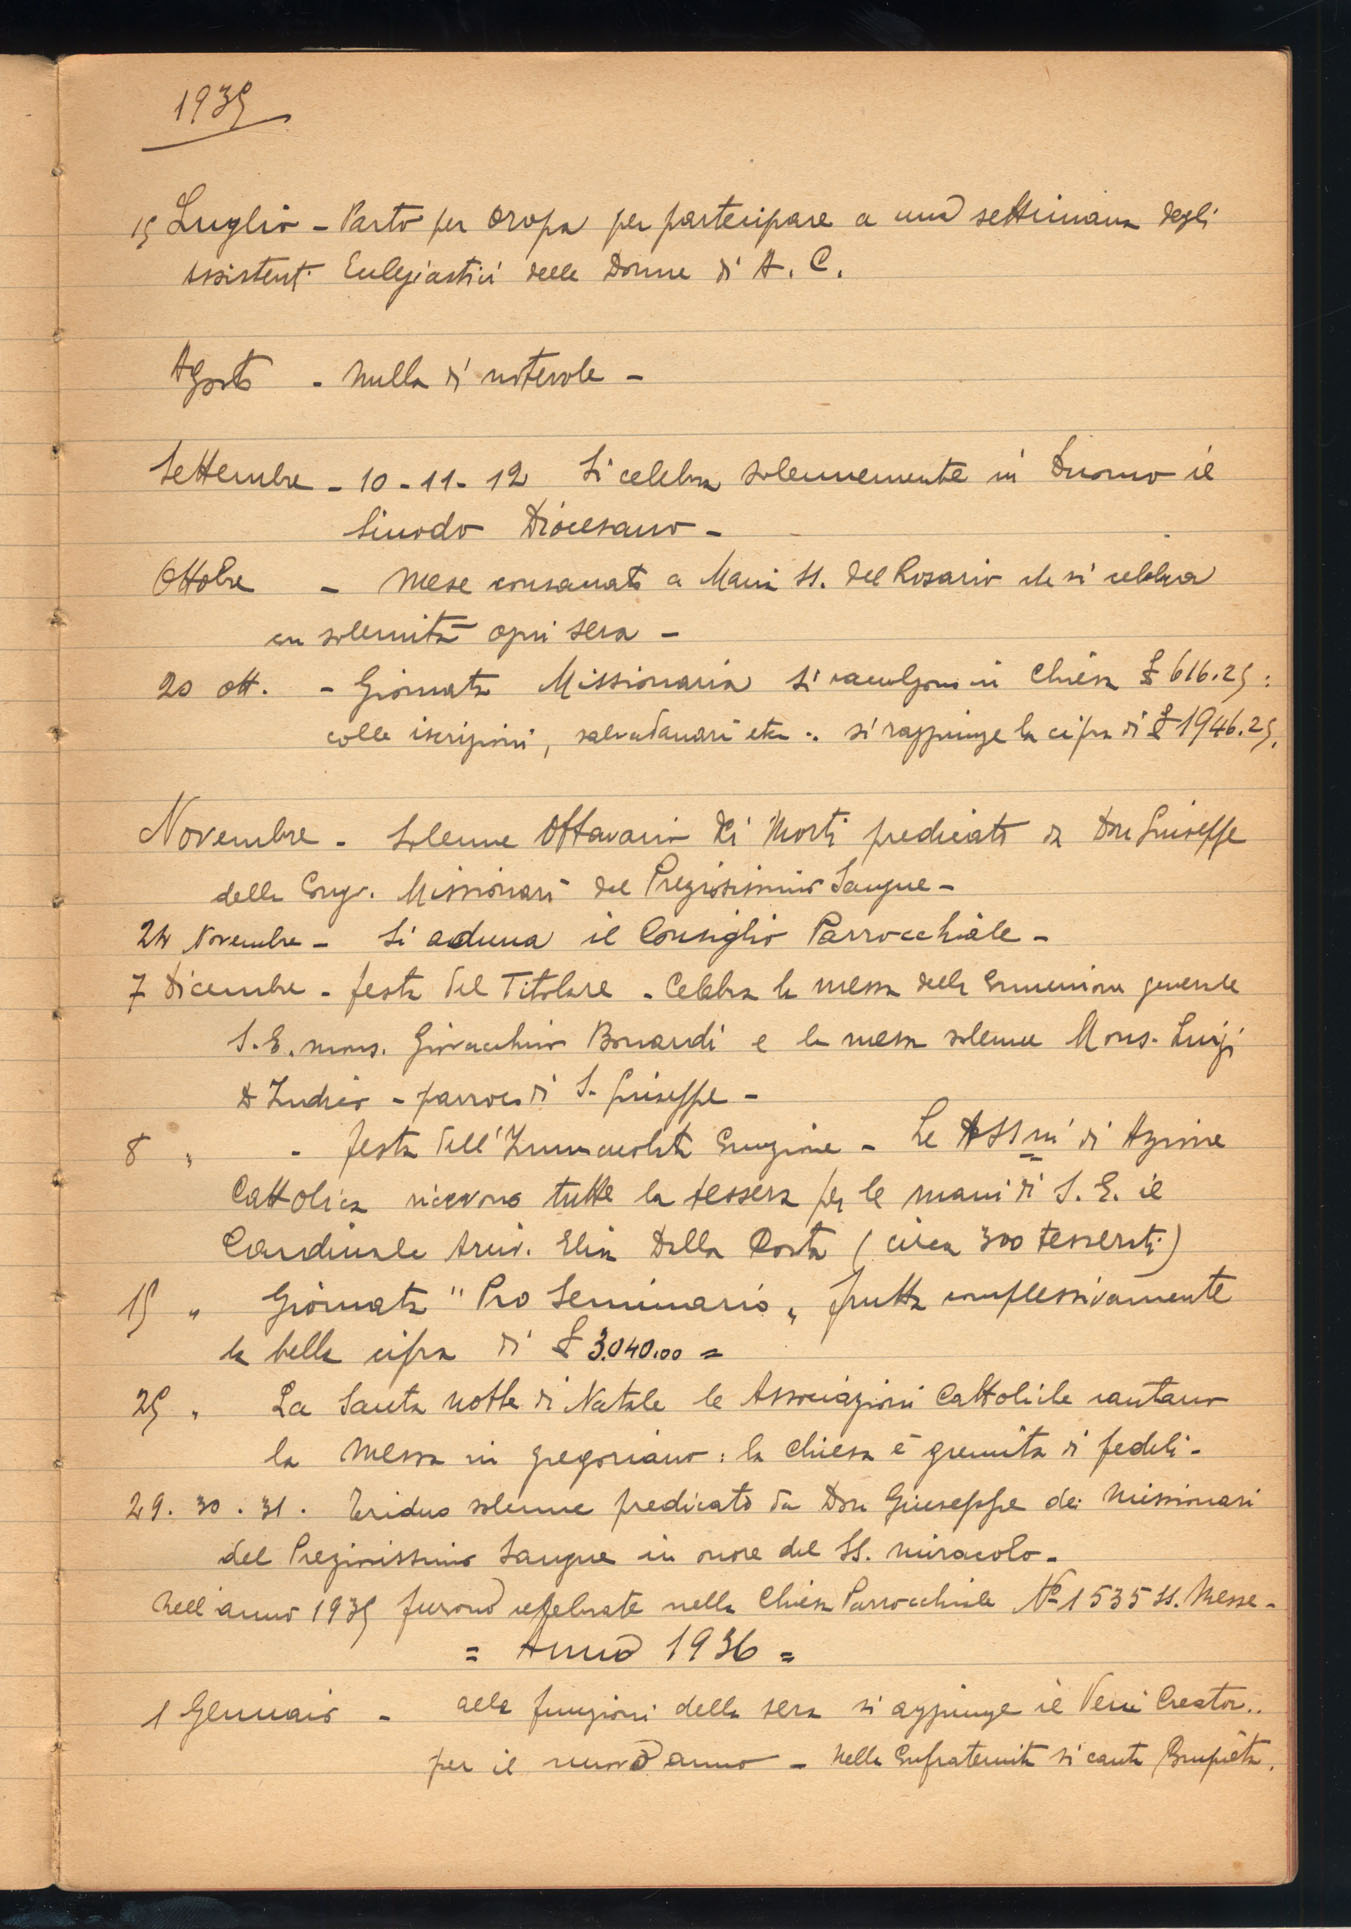 1935
15 Luglio - Parto per Oropa per partecipare a una settimana degli
Assistenti Eccle͏siastici delle Donne di A. C.
Agosto - Nulla di notevole -
Settembre - 10-11-12 Si celebra solennemente in Duomo il
Sinodo Diocesano -
Ottobre - Mese consacrato a Maria SS. del Rosario che si celebra
con solennità ogni sera -
20 ott. - Giornata Missionaria si raccolgono in Chiesa £ 616.25:
colle iscrizioni, salvadanari etc.. si raggiunge la cifra di £ 1946.25.
Novembre - Solenne Ottavario dei Morti predicato da Don Giuseppe
della Congr. Missionari del Preziosissimo Sangue -
24 Novembre - Si aduna il Consiglio Parrocchiale -
7 Dicembre - festa del Titolare - Celebra la messa della Comunione generale
S. E. mons. Giovacchino Bonardi e la messa solenne Mons. Luigi
D'Indico - parroco di S. Giuseppe -
8 " - festa dell'Immacolata Concezione - Le Assni di Azione
Cattolica ricevono tutte la tessera per le mani di S. E. il
Cardinale Arciv. Elia Dalla Costa (circa 300 tesserati)
15 " Giornata "Pro Seminario" frutta complessivamente
la bella cifra di £ 3.040.00 =
25 " La Santa Notte di Natale le Associazioni Cattoliche cantano
la Messa in gregoriano: la chiesa è gremita di fedeli -
29. 30. 31. Triduo solenne predicato da Don Giuseppe dei Missionari
del Preziosissimo Sangue in onore del SS. Miracolo -
Nell'anno 1935 furono celebrate nella Chiesa Parrocchiale No 1535 SS. Messe -
= Anno 1936 =
1 Gennaio - alla funzioni della sera si aggiunge il Veni Creator..
per il nuovo anno - Nella Confraternita si canta Compieta.